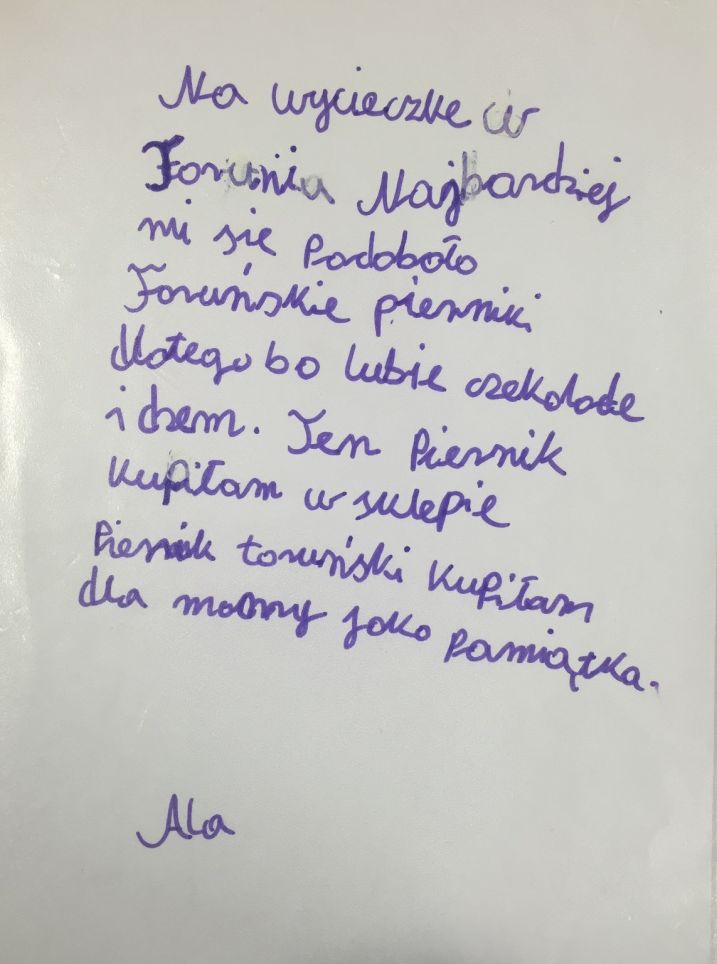 Na wycieczke w
Toruniu Najbardziej
mi się Podobało
Toruńskie pierniki
dlatego bo lubie czekolade
i dzem. Ten Piernik
kupiłam w sklepie
Piernik toruński kupiłam
dla mamy jako Pamiątka.
Ala